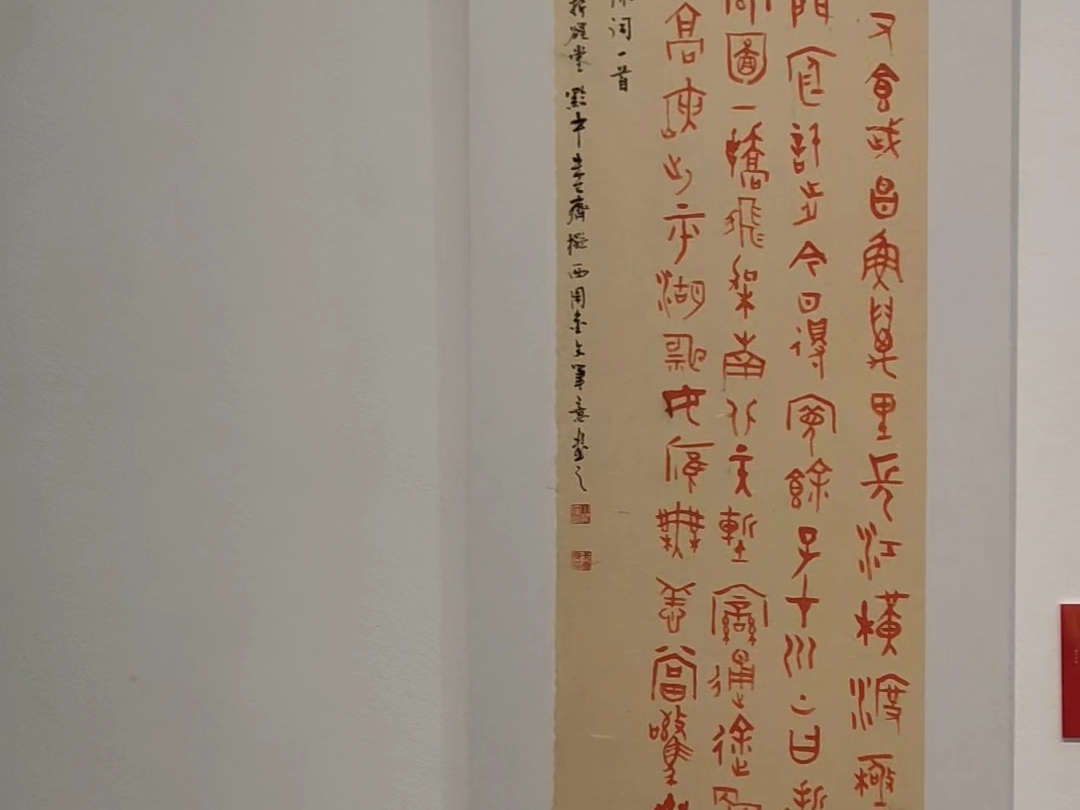 又食武昌魚萬里長江橫渡極
庭信步今日得寬餘子在川上曰逝
圖一橋飛架南北天塹變通途
高峽出平湖神女應無恙當驚
詞一首
堂黔中齊擬西周金文筆意書之